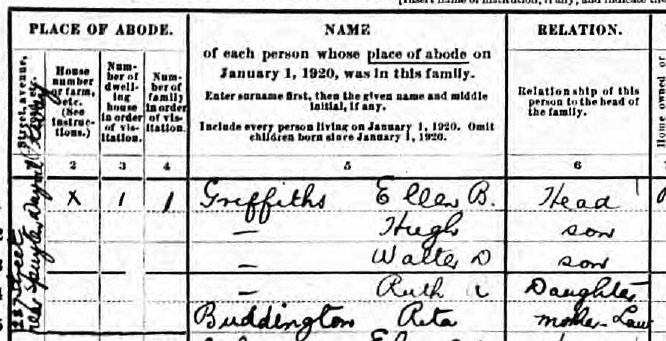 PLACE OF ABODE.
Street, avenue,
House number or farm, etc. (See instructions.)
Number of dwelling house in order of visitation.
Number of family in order of visitation.
2 3 4
NAME
of each person whose place of abode on
January 1, 1920, was in this family.
Enter surname first, then the given name and middle
initial, if any.
Include every person living on January 1, 1920. Omit
children born since January 1, 1920.
5
RELATION.
Relationship of this
person to the head of
the family.
6
Home owned or
X 1 1 Griffiths Ellen B. Head
— Hugh son
— Walter D son
— Ruth Daughter
Buddington Reta mother-Law
Street
near